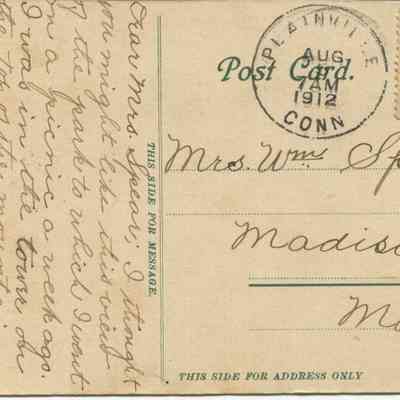 Dear Mrs. Spear; I thought
you might like this view
of the park to which I went
on a picnic a week ago.
I was in the tower on
the top of the mount
THIS SIDE FOR MESSAGE.
Post Card.
PLAINVILLE
AUG
7AM
1912
CONN
Mrs. Wm Sp
Madis
THIS SIDE FOR ADDRESS ONLY